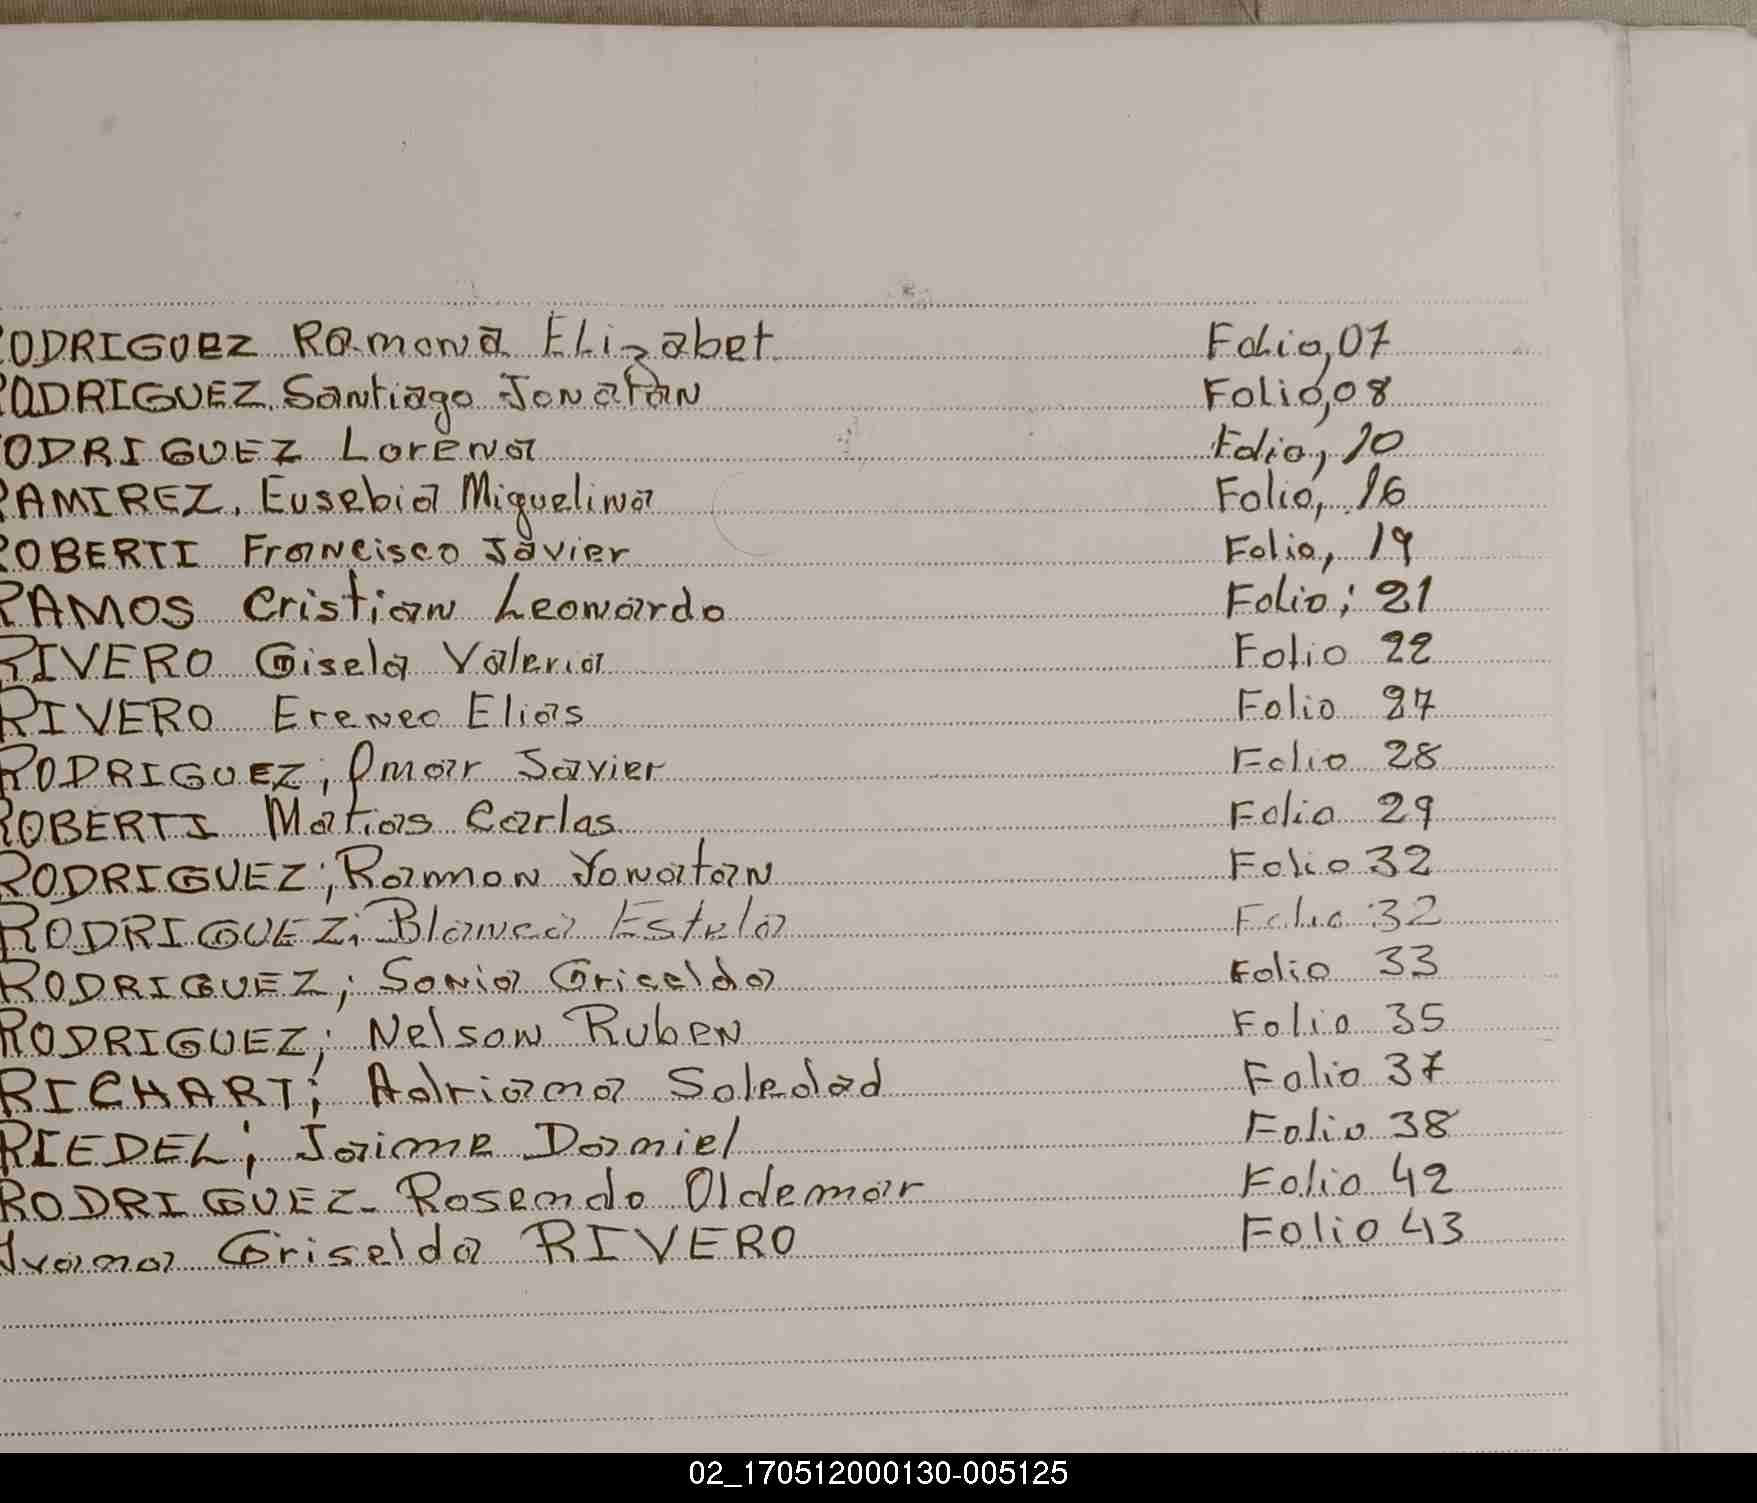 RODRIGUEZ Ramona Elizabet Folio, 07
RODRIGUEZ. Santiago Jonatan Folio, 08
RODRIGUEZ Lorena Folio, 10
RAMIREZ. Eusebia Miguelina Folio, 16
ROBERTI Francisco Javier Folio, 19
RAMOS Cristian Leonardo Folio; 21
RIVERO Gisela Valeria Folio 22
RIVERO Ereneo Elias Folio 27
RODRIGUEZ; Omar Javier Folio 28
ROBERTI Matias Carlos Folio 29
RODRIGUEZ; Ramon Yonatan Folio 32
RODRIGUEZ; Blanca Estela Folio 32
RODRIGUEZ; Sonia Griselda Folio 33
RODRIGUEZ; Nelson Ruben Folio 35
RICHART; Adriana Soledad Folio 37
RIEDEL; Jaime Daniel Folio 38
RODRIGUEZ- Rosendo Oldemar Folio 42
Ivana Griselda RIVERO Folio 43
02_170512000130-005125